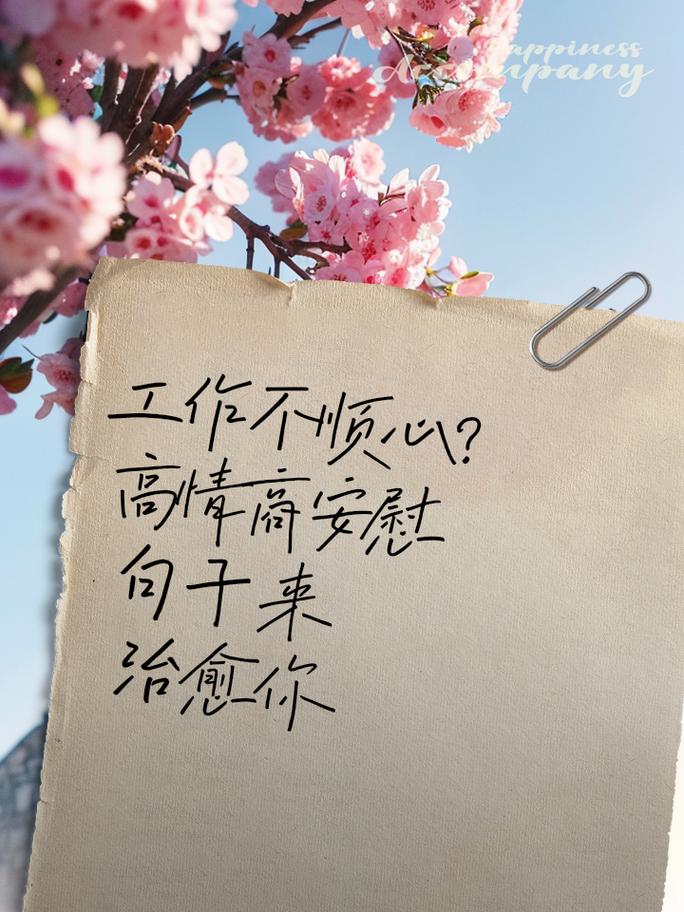 Happiness
Accompany
工作不顺心?
高情商安慰
句子来
治愈你